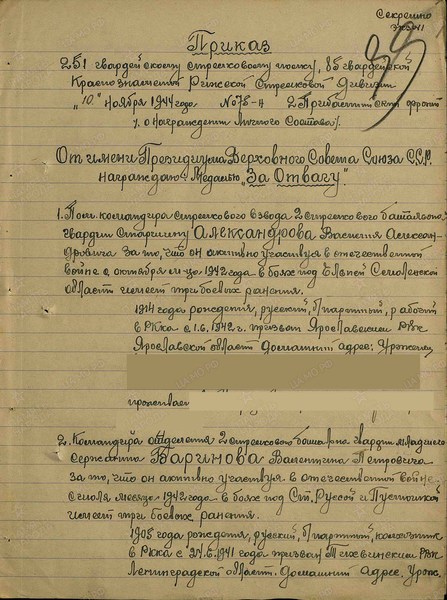 Секретно
экз №1
Приказ
251 гвардейскому стрелковому полку, 85 гвардейской
Краснознаменной Рижской Стрелковой Дивизии
"10" Ноября 1944 года № 78-н 2 Прибалтийский фронт
/. о награждении Личного Состава/.
От имени Президиума Верховного Совета Союза С.С.Р.
награждаю: Медалью "За Отвагу"
1. Пом. командира стрелкового взвода 2 стрелкового батальона
гвардии Старшину Александрова Василия Алексан-
дровича за то, что он активно участвуя в отечественной
войне с октября м-ца 1942 года в боях под Ельней Смоленской
области имеет три боевых ранения.
1914 года рождения, русский, б/партийный, рабочий
в РККА с 1.6.1942 г. призван Ярославским РВК
Ярославской области Домашний адрес: Урожен.
проживает
2. Командира отделения 2 стрелкового батальона гвардии младшего
сержанта Баринова Валентина Петровича
за то, что он активно участвуя в отечественной войне
с июля месяца 1942 года в боях под Ст. Руссой и Пустошкой
имеет три боевых ранения.
1905 года рождения, русский, б/партийный, колхозник
в РККА с 24.6.1941 года призван Тихвинским РВК
Ленинградской области. Домашний адрес. Урож.